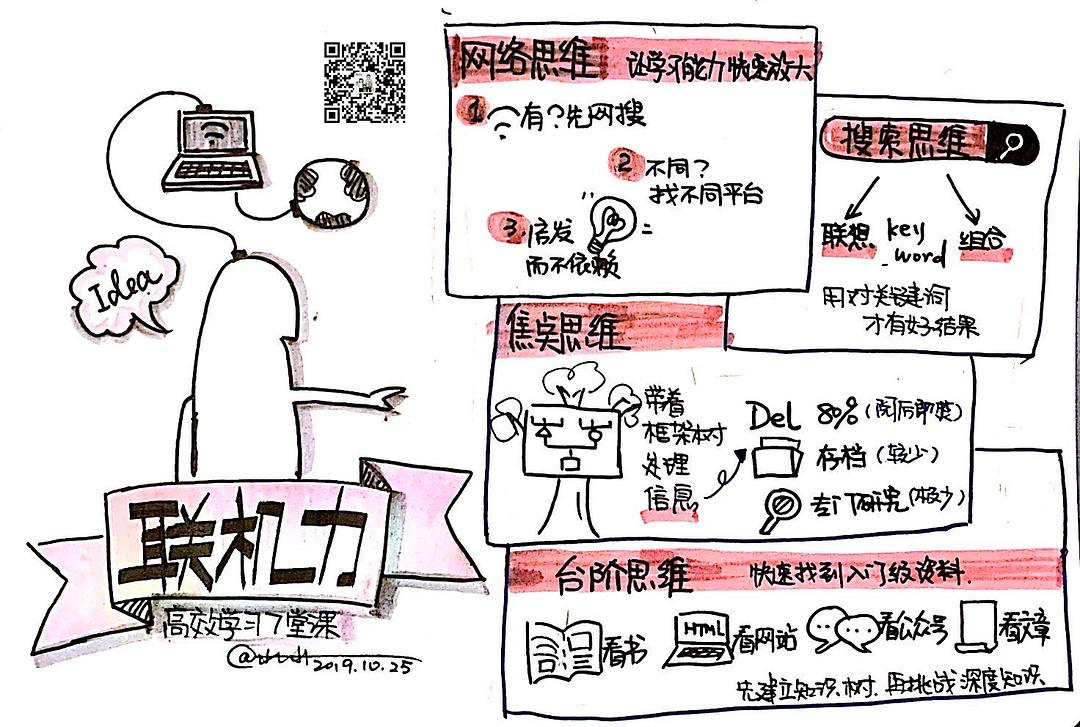 Idea
联机力
高效学习7堂课
2019.10.25
网络思维 让学习能力快速放大
1 有?先网搜
2 不同?
找不同平台
3 启发
而不依赖
搜索思维
联想 key word 组合
用对关键词
才有好结果
焦点思维
带着
框架树
处理
信息
Del 80% (阅后即焚)
存档 (较少)
专门研究 (极少)
台阶思维 快速找到入门级资料.
看书
HTML
看网站
看公众号
看文章
先建立知识树.再挑战深度知识